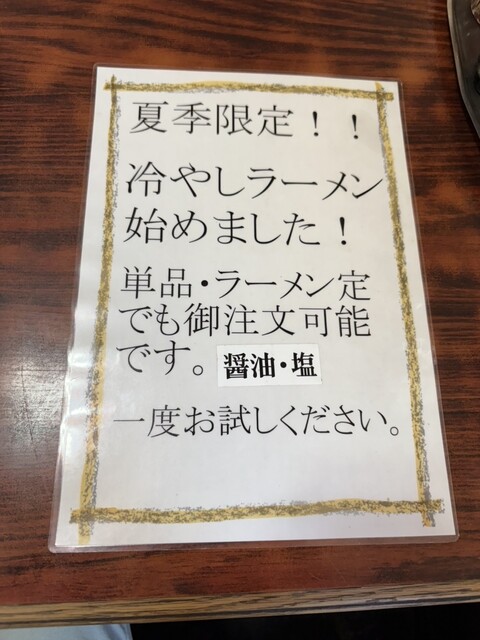 夏季限定！！
冷やしラーメン
始めました！
単品・ラーメン定
でも御注文可能
です。 醤油・塩
一度お試しください。